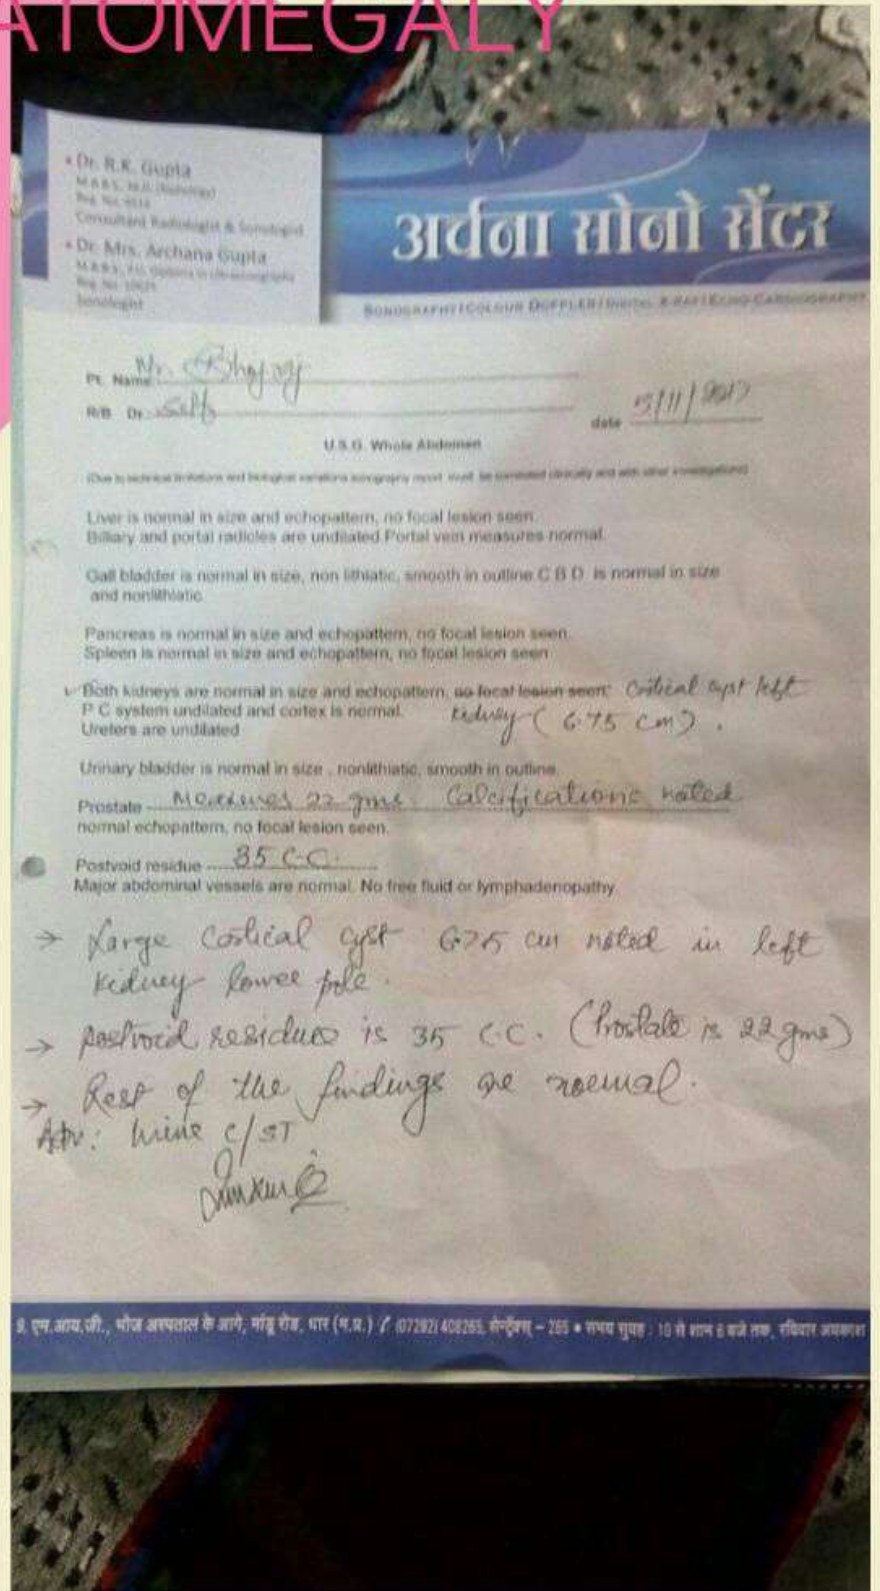 ATOMEGALY
• Dr. R.K. Gupta
Consultant Radiologist & Sonologist
• Dr. Mrs. Archana Gupta
Sonologist
अर्चना सोनो सेंटर
SONOGRAPHY / COLOUR DOPPLER / DIGITAL X-RAY / ECHO-CARDIOGRAPHY
Pt. Name Mr.
R/B Dr. Self
date /11/
U.S.G. Whole Abdomen
(Due to technical limitations and biological variations sonography report must be correlated clinically and with other investigations)
Liver is normal in size and echopattern, no focal lesion seen.
Biliary and portal radicles are undilated Portal vein measures normal.
Gall bladder is normal in size, non lithiatic, smooth in outline C B D is normal in size
and nonlithiatic.
Pancreas is normal in size and echopattern, no focal lesion seen.
Spleen is normal in size and echopattern, no focal lesion seen
Both kidneys are normal in size and echopattern, no focal lesion seen. Cortical cyst left
P C system undilated and cortex is normal. kidney (6.75 cm).
Ureters are undilated
Urinary bladder is normal in size , nonlithiatic, smooth in outline.
Prostate Measures 22 gms. Calcifications noted
normal echopattern, no focal lesion seen.
Postvoid residue 35 C.C.
Major abdominal vessels are normal. No free fluid or lymphadenopathy.
→ Large Cortical cyst 6.75 cm noted in left
kidney lower pole.
→ Postvoid residue is 35 C.C. (Prostate is 22 gms)
→ Rest of the findings are normal.
Adv: Urine C/ST
9, एम.आय.जी., भोज अस्पताल के आगे, मांडू रोड, धार (म.प्र.) (07292) 408265, सेन्ट्रेक्स् - 265 • समय सुबह : 10 से शाम 6 बजे तक, रविवार अवकाश